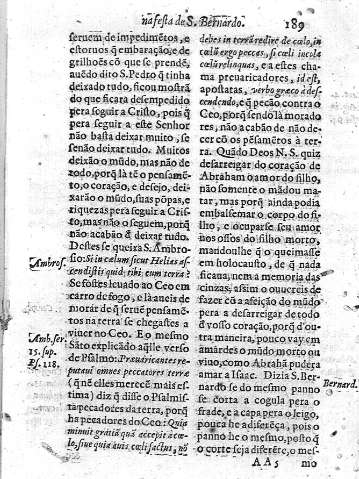 nafesta de S. Bernardo. 189
seruem de impedimẽtos, e
estoruos q̃ embaração, e de
grilhoẽs cõ que se prendẽ,
auẽdo dito S. Pedro q̃ tinha
deixado tudo, ficou mostrã
do que ficara desempedido
pera seguir a Cristo, pois q̃
pera seguir a este Senhor
não basta deixar muito, se
senão deixar tudo. Muitos
deixão o mũdo, mas não de
todo, porq̃ là tẽ o pensamẽ-
to, o coração, e desejo, dei-
xarão o mũdo, suas põpas, e
riquezas pera seguir a Cris-
to, mas não o seguem, porq̃
não acabão de deixar tudo.
Destes se queixa S. Ambro-
Ambros. sio: Si in cœlum sicut Helias as
cendistis quid tibi cum terra?
Se fostes leuado ao Ceo em
carro de fogo, e là aueis de
morar de q̃ seruẽ pensamẽ
tos na terra se chegastes a
Amb. ser. viuer no Ceo. E o mesmo
15. sup. Sãto explicado aq̃lle verso
Ps. 118. de Psalmo: Preuaricantes re-
putaui omnes peccatores terræ
(q̃ nẽ elles merecẽ mais es-
tima) diz q̃ disse o Psalmis-
ta pecadores da terra, porq̃
ha pecadores do Ceo: Quia
minuit gratiã quã accepit à cœ-
lo, siue quia àuis cœli factus, nõ
debes in terrã redire de cœlo, in
cœlũ ergo peccas, si cœli incola
cœlũ relinquas, e a estes cha
ma preuaricadores, id est,
apostatas, verbo græco à des-
cendendo, e q̃ pecão contra o
Ceo, porq̃ sendo là morado
res, não acabão de não de-
cer cõ os pẽsamẽtos à ter-
ra. Quãdo Deos N. S. quiz
desarreigar do coração de
Abraham o amor do filho,
não somente o mãdou ma-
tar, mas porq̃ ainda podia
embalsemar o corpo do fi-
lho, e ocuparse seu amor
nos ossos do filho morto,
mandoulhe q̃ o queimasse
em holocausto, de q̃ nada
ficaua, nem a memoria das
cinzas, assim o ouuereis de
fazer cõ a afeição do mũdo
pera a desarreigar de todo
d'vosso coração, porq̃ d'ou-
tra maneira, pouco vay em
amardes o mũdo morto ou
viuo, como Abrahã pudera
amar a Isaac. Dizia S. Ber-
nardo se do mesmo panno Bernard.
se corta a cogula pera o
frade, e a capa pera o leigo,
pouca he a difereça, pois o
panno he o mesmo, posto q̃
o corte seja diferẽte, o mes-
A A 5 mo